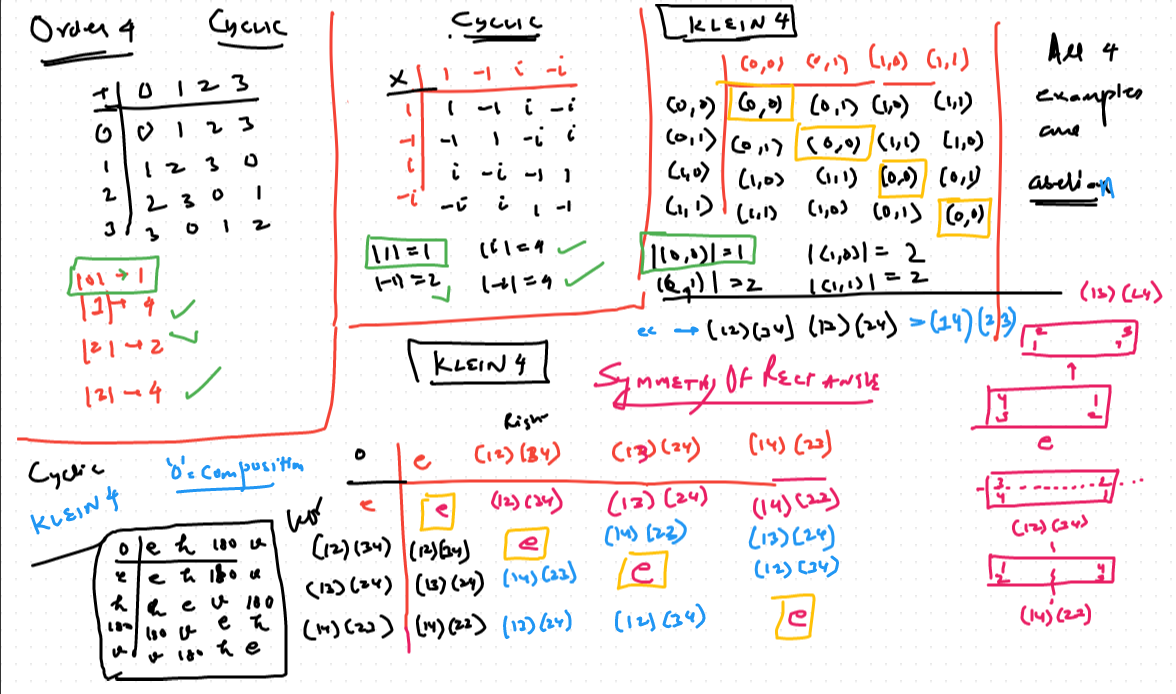 Order 4 Cyclic
+ 0 1 2 3
0 0 1 2 3
1 1 2 3 0
2 2 3 0 1
3 3 0 1 2
|0| → 1
|1| → 4
|2| → 2
|2| → 4
Cyclic
× 1 -1 i -i
1 1 -1 i -i
-1 -1 1 -i i
i i -i -1 1
-i -i i 1 -1
|1| = 1 |i| = 4
|-1| = 2 |-i| = 4
KLEIN 4
(0,0) (0,1) (1,0) (1,1)
(0,0) (0,0) (0,1) (1,0) (1,1)
(0,1) (0,1) (0,0) (1,1) (1,0)
(1,0) (1,0) (1,1) (0,0) (0,1)
(1,1) (1,1) (1,0) (0,1) (0,0)
|(0,0)| = 1 |(1,0)| = 2
|(0,1)| = 2 |(1,1)| = 2
All 4
examples
are
abelian
→ (12)(34) (13)(24) = (14)(23)
KLEIN 4
SYMMETRY OF RECTANGLE
Right
o e (12)(34) (13)(24) (14)(23)
e e (12)(34) (13)(24) (14)(23)
(12)(34) (12)(34) e (14)(23) (13)(24)
(13)(24) (13)(24) (14)(23) e (12)(34)
(14)(23) (14)(23) (13)(24) (12)(34) e
Cyclic
KLEIN 4
'o' = composition
o e h 180 v
e e h 180 v
h h e v 180
180 180 v e h
v v 180 h e
(13)(24)
2 3
1 4
4 1
3 2
e
3 2
4 1
(12)(34)
1 4
2 3
(14)(23)